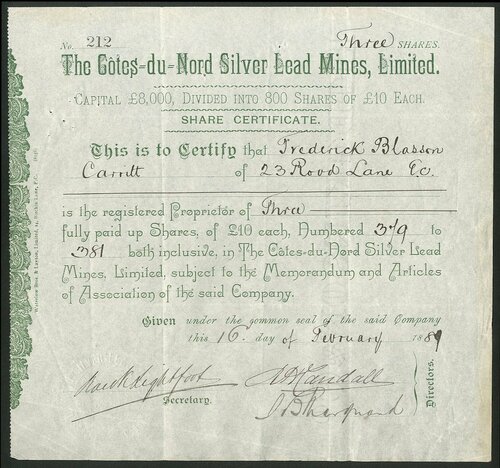 No. 212 Three SHARES.
The Côtes-du-Nord Silver Lead Mines, Limited.
CAPITAL £8,000, DIVIDED INTO 800 SHARES OF £10 EACH.
SHARE CERTIFICATE.
This is to Certify that Frederick Blasson
Carritt of 23 Rood Lane E.C.
is the registered Proprietor of Three
fully paid up Shares, of £10 each, Numbered 379 to
381 both inclusive, in The Côtes-du-Nord Silver Lead
Mines, Limited, subject to the Memorandum and Articles
of Association of the said Company.
Given under the common seal of the said Company
this 16 day of February 1889
Secretary.
Directors.